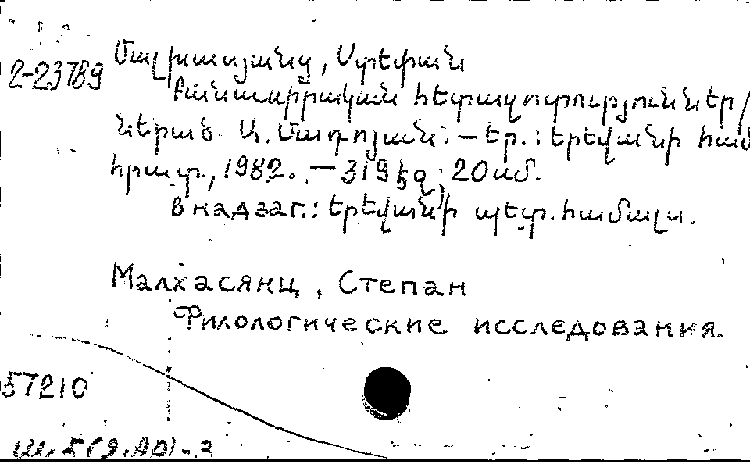 2-23789 Մալխասյանց, Ստեփան
Բանասիրական հետազոտություններ/
ներած. Ա. Մադոյան. — Եր.: Երևանի համ
հրատ., 1982. — 319 էջ, 20 սմ.
В надзаг.: Երևանի պետ. համալս.
Малхасянц, Степан
Филологические исследования.
57210